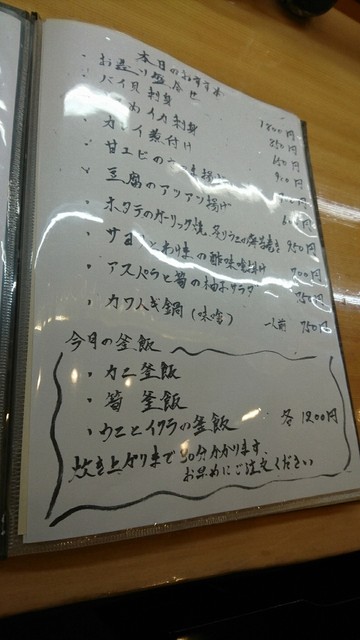 本日のおすすめ
・お造り盛合せ 1800円
・バイ貝刺身 850円
イカ刺身 650円
・カレイ煮付け 900円
・甘エビの 揚げ
・豆腐のアツアツ揚げ
・ホタテのガーリック焼 950円
・ とわけぎの酢味噌掛け 700円
・アスパラと筍の柚子サラダ 750円
・カワハギ鍋(味噌) 一人前 750円
今日の釜飯
・カニ釜飯
・筍 釜飯
・ウニとイクラの釜飯 各1200円
炊き上がりまで30分かかります、
お早めにご注文ください